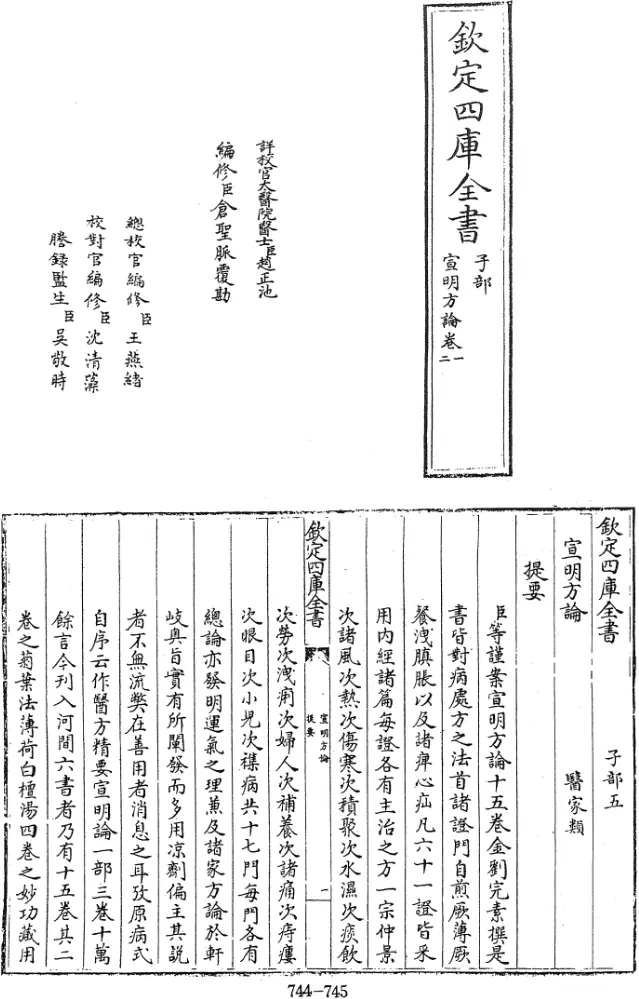 欽定四庫全書
子部
宣明方論卷一
二
詳校官太醫院醫士臣趙正池
編修臣倉聖脈覆勘
總校官編修臣王燕緒
校對官編修臣沈清藻
謄錄監生臣吳敬時
欽定四庫全書　子部五
宣明方論　醫家類
提要
臣等謹案宣明方論十五卷金劉完素撰是
書皆對病處方之法首諸證門自煎厥薄厥
飱洩䐜脹以及諸痺心疝凡六十一證皆采
用內經諸篇每證各有主治之方一宗仲景
次諸風次熱次傷寒次積聚次水濕次痰飲
欽定四庫全書
宣明方論
提要
一
次勞次洩痢次婦人次補養次諸痛次痔瘻
次眼目次小兒次襍病共十七門每門各有
總論亦發明運氣之理兼及諸家方論於軒
岐奥旨實有所闡發而多用凉劑偏主其說
者不無流弊在善用者消息之耳攷原病式
自序云作醫方精要宣明論一部三卷十萬
餘言今刋入河間六書者乃有十五卷其二
卷之菊葉法薄荷白檀湯四卷之妙功藏用
744-745